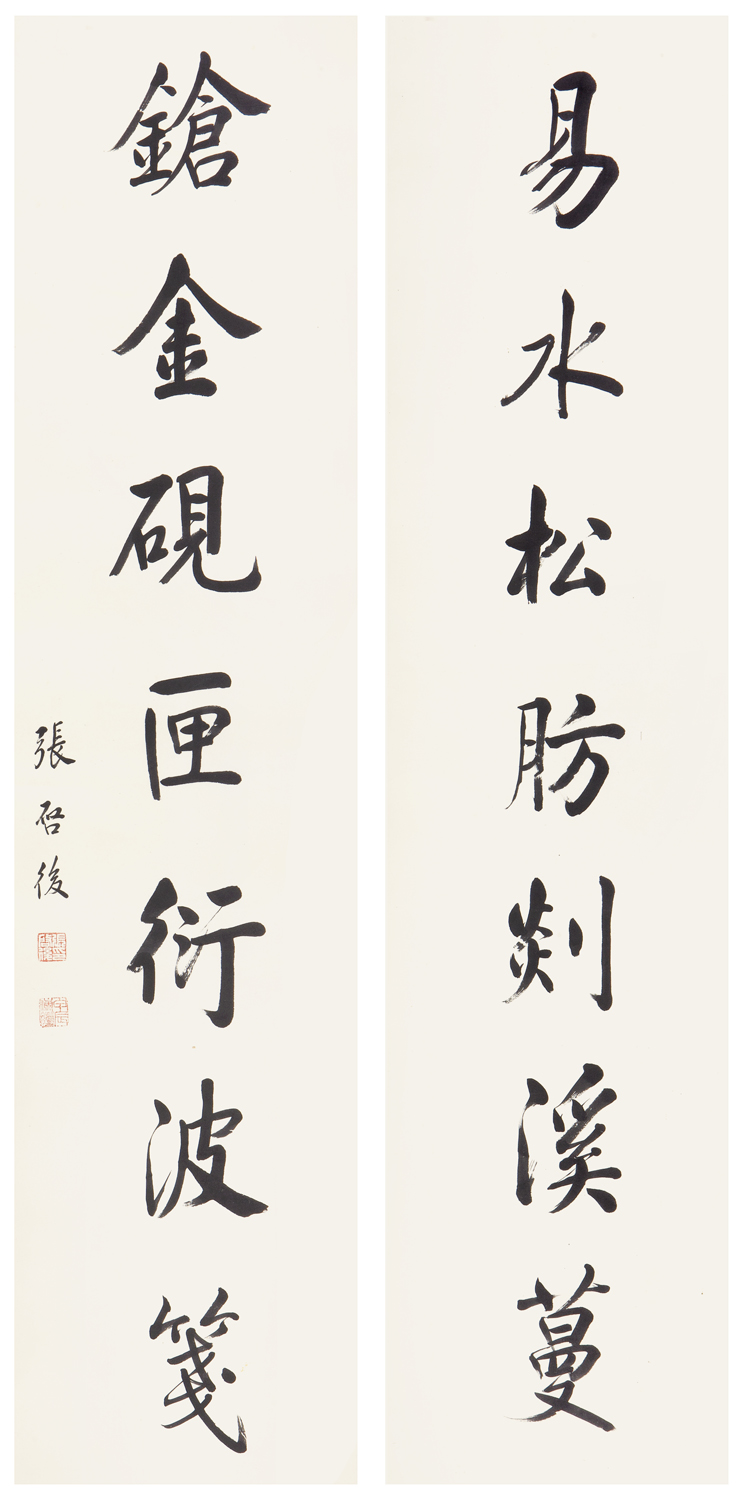 易水松肪剡溪蔓
鎗金硯匣衍波箋
張啓後